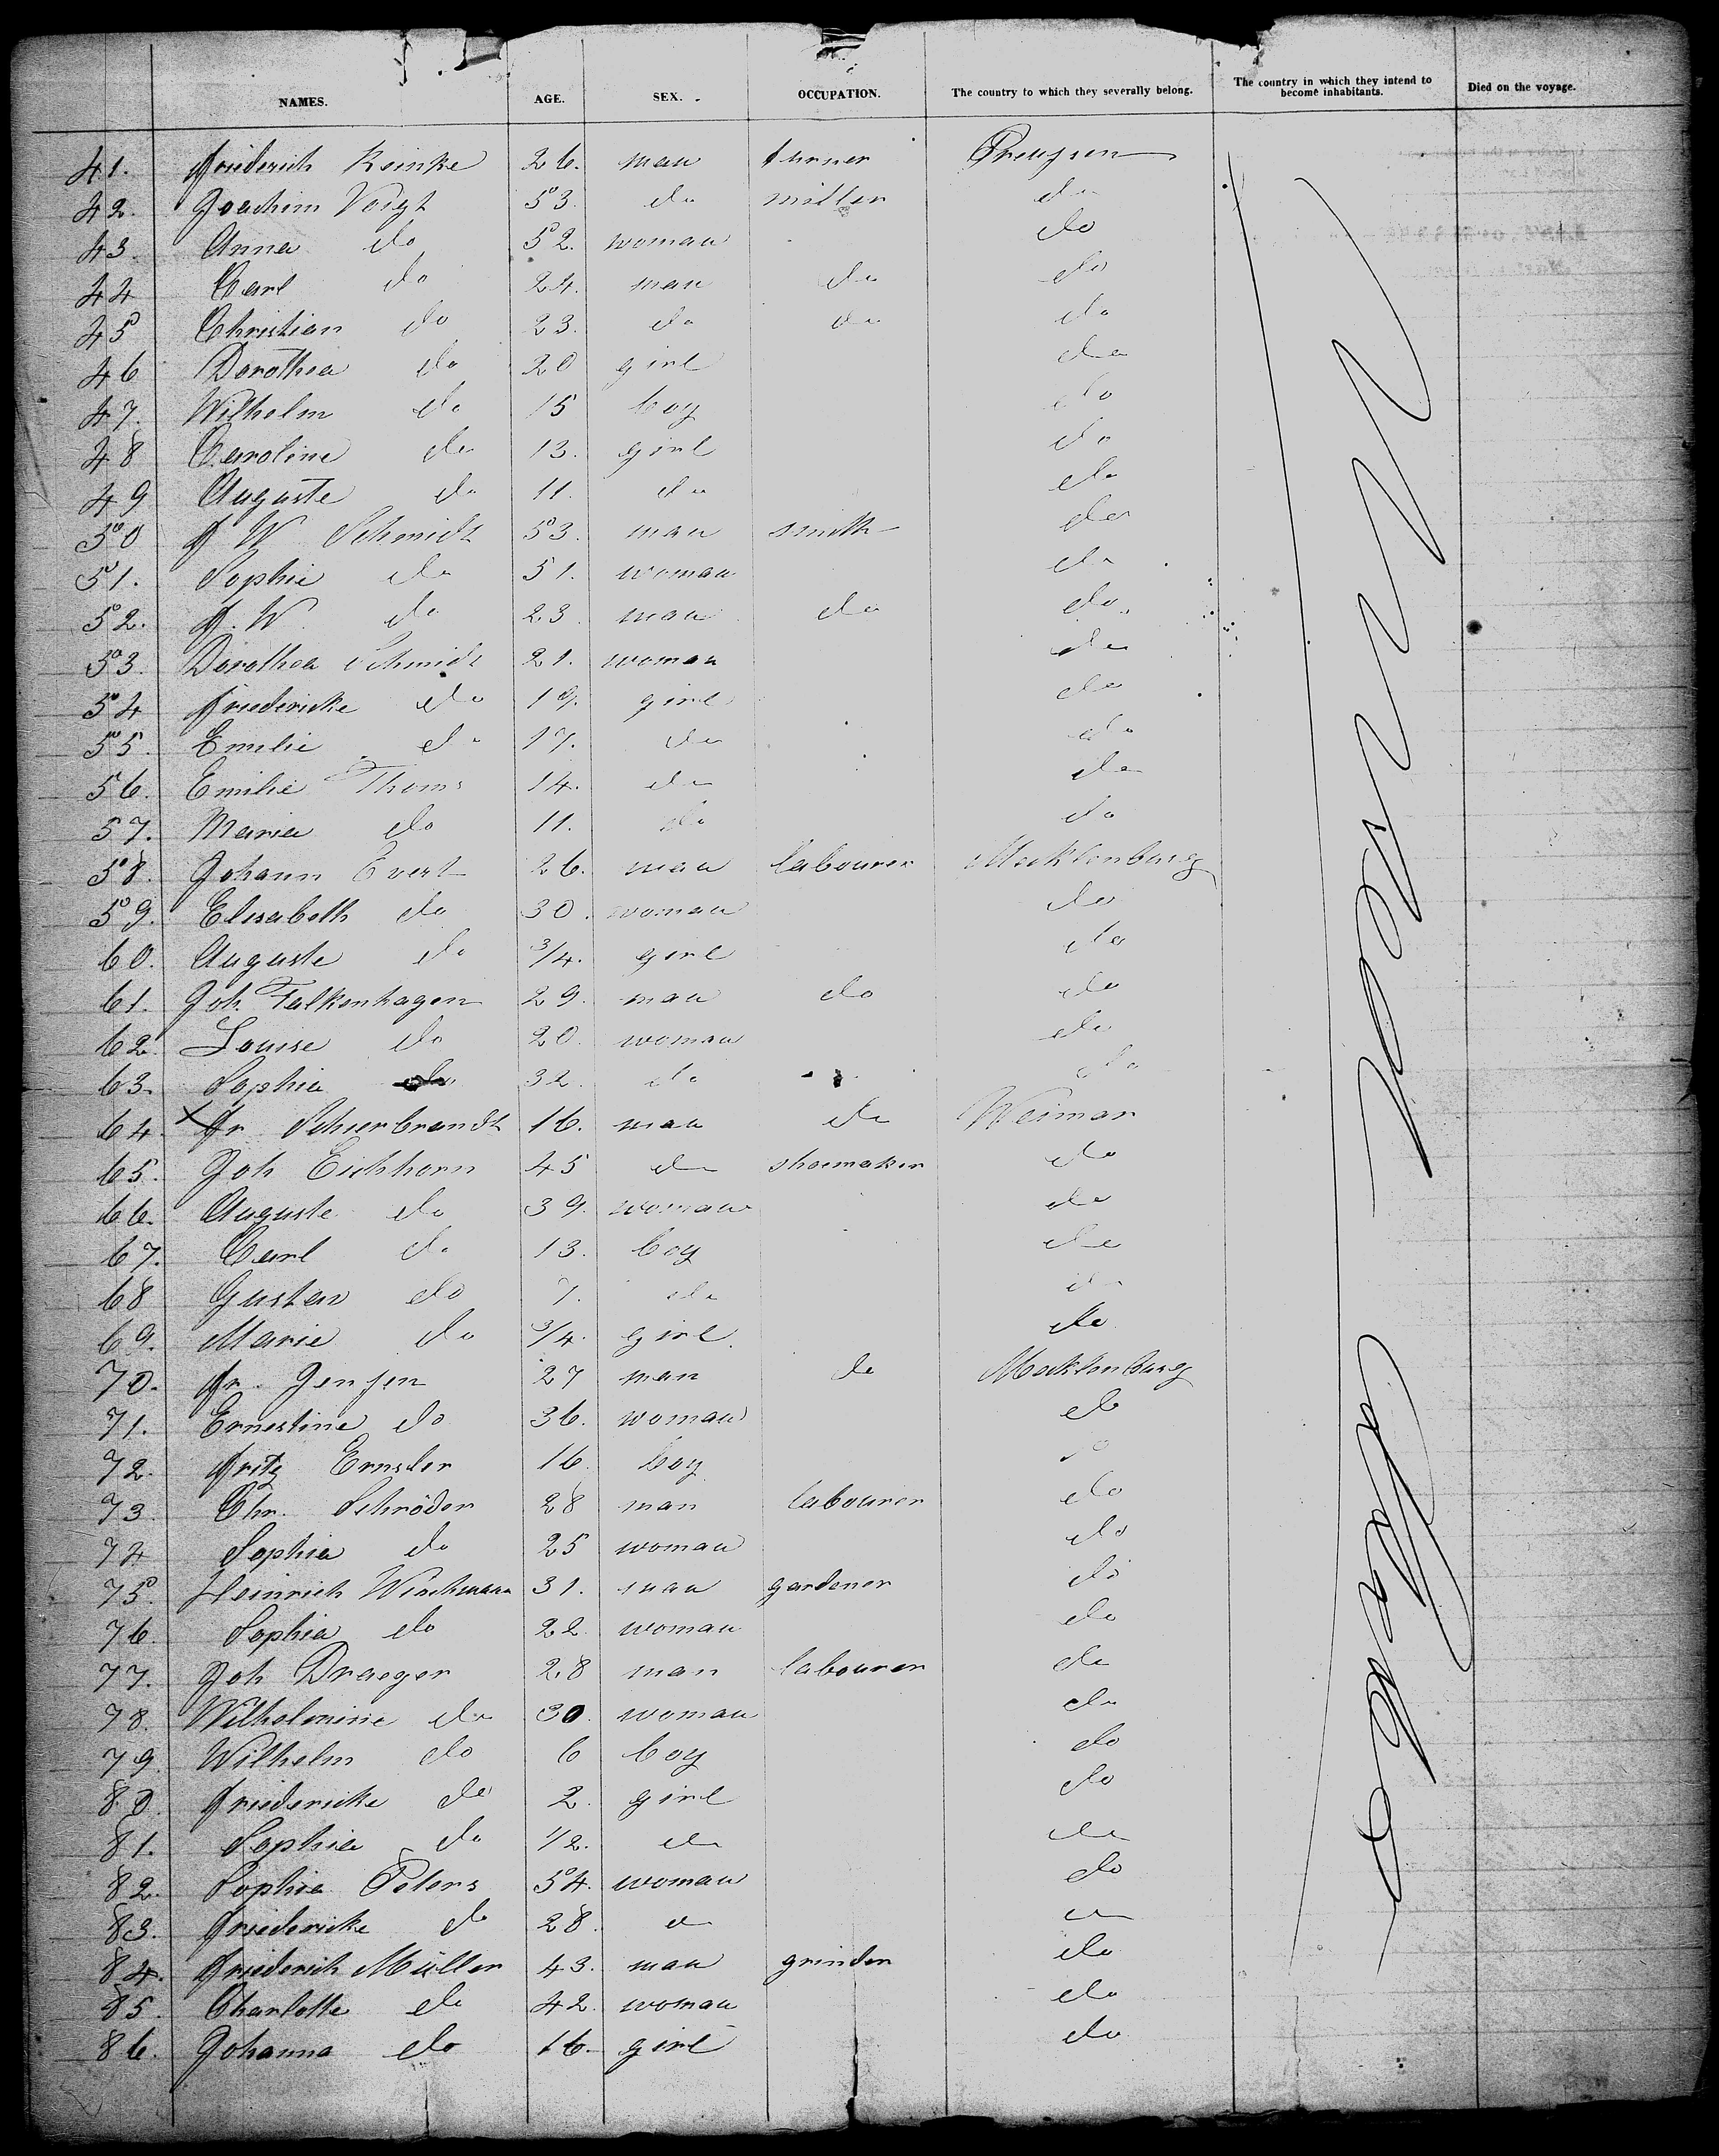 NAMES. AGE. SEX. OCCUPATION. The country to which they severally belong. The country in which they intend to become inhabitants. Died on the voyage.
41. Friederich Reinke 26. man turner Preussen
42. Joachim Voigt 53. do miller do
43. Anna do 52. woman do
44 Carl do 24. man do do
45 Christian do 23. do do do
46 Dorothea do 20 girl do
47. Wilhelm do 15 boy do
48 Caroline do 13. girl do
49 Auguste do 11. do do
50 F W Schmidt 53. man smith do
51. Sophie do 51. woman do
52. F. W. do 23. man do do
53. Dorothea Schmidt 21. woman do
54 Friedericke do 19. girl do
55. Emilie do 17. do do
56. Emilie Thoms 14. do do
57. Maria do 11. do do
58. Johann Evert 26. man labourer Mecklenburg
59. Elisabeth do 30. woman do
60. Auguste do 3/4. girl do
61. Joh. Falkenhagen 29. man do do
62. Louise do 20. woman do
63. Sophia do 32. do do
64. Fr. Scheerbrandt 16. man do Weimar
65. Joh Eichhorn 45 do shoemaker do
66. Auguste do 39. woman do
67. Carl do 13. boy do
68 Gustav do 7. do do
69. Marie do 3/4. girl. do
70. Fr. Jenssen 27 man do Mecklenburg
71. Ernestine do 36. woman do
72. Fritz 16. boy do
73. Chr. Schröder 28 man labourer do
74 Sophia do 25 woman do
75. Heinrich Wiechmann 31. man gardener do
76. Sophia do 22. woman do
77. Joh Draeger 28 man labourer do
78. Wilhelmine do 30. woman do
79. Wilhelm do 6 boy do
80. Friedericke do 2. girl do
81. Sophia do 1/2. do do
82. Sophia Peters 54. woman do
83. Friedericke do 28. do do
84. Friederich Müller 43. man grinder do
85. Charlotte do 42. woman do
86. Johanna do 16. girl do